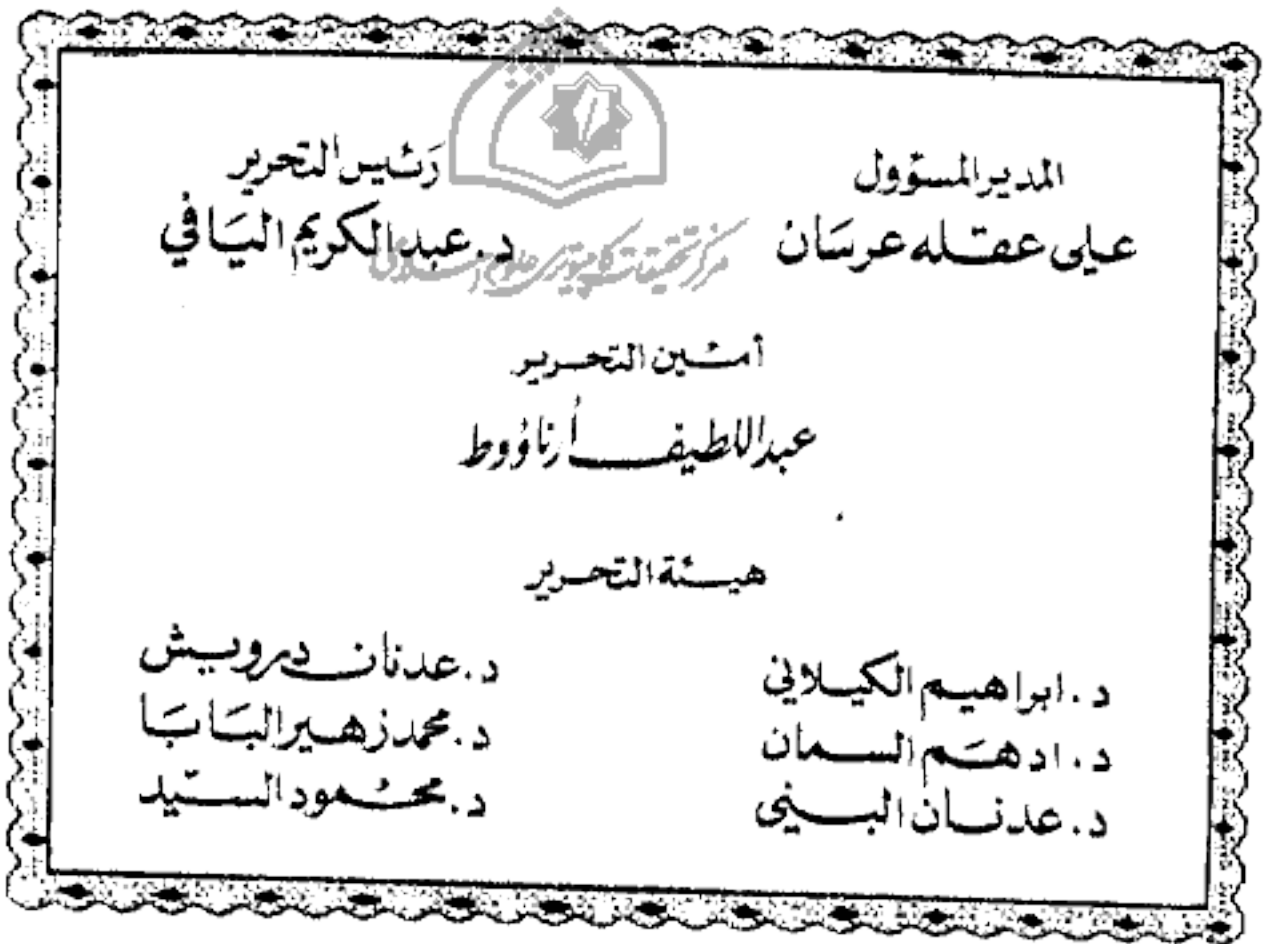 المدير المسؤول
علي عقله عرسان
رئيس التحرير
د. عبد الكريم اليافي
مركز تحقيقات كامپيوتری علوم اسلامی
أمين التحرير
عبد اللطيف أرناؤوط
هيئة التحرير
د. ابراهيم الكيلاني
د. عدنان درويش
د. ادهم السمان
د. محمد زهير البابا
د. عدنان البني
د. محمود السيّد